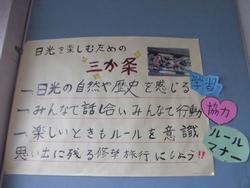 日光を楽しむための
三か条
一.日光の自然や歴史を感じる
学習
一.みんなで話し合いみんなで行動
協力
一.楽しいときもルールを意識
ルール
マナー
思い出に残る修学旅行にしよう!!